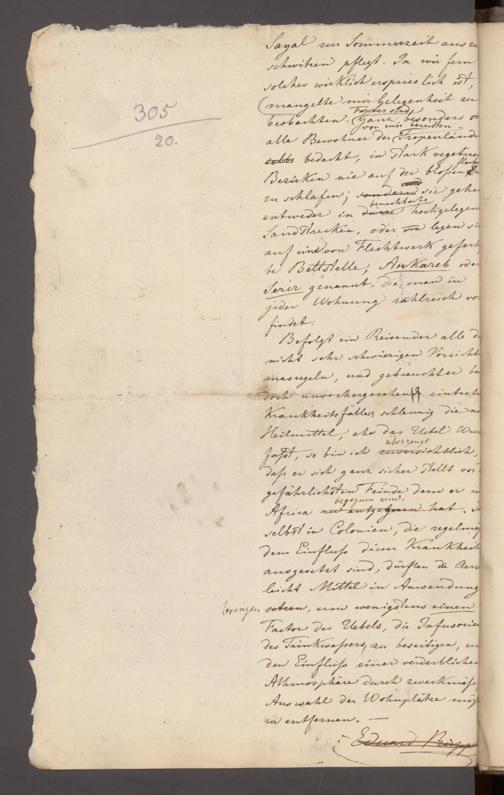 305
20.
Sayal zur Sommerzeit aus zu
schwitzen pflegt. In wie fern
solches wirklich erspriesslich ist,
mangelte mir Gelegenheit zu
beobachten. Ganz besonders
von mir bereisten
alle Bewohner der Tropenlände
bedacht, in stark vegetir
Bezirken nie auf der blossen
zu schlafen; sondern sie gehen
benachbarte
entweder in hochgelegene
Sandstrecken, oder legen sie
auf eine von Flechtwerk gefert
te Bettstelle, Ankareb oder
Serir genannt, die man in
jeder Wohnung zahlreich vor
findet.
Befolgt ein Reisender alle d
nicht sehr schwierigen Vorsichts
masregeln, und gebraucht er be
doch unvorhergesehen eintreten
Krankheitsfällen schleunig die
Heilmittel, ehe das Uebel Wur
überzeugt
fasst, so bin ich zuversichtlich,
dass er sich ganz sicher stellt vor d
gefährlichsten Feinde dem er in
begegnen
Africa zu entgegnen hat.
selbst in Colonien, die regelmäs
dem Einfluss dieser Krankheit
ausgesetzt sind, dürften die Aer
leicht Mittel in Anwendung
bringen setzen, um wenigstens einen
Factor des Uebels, die Infusorien
des Trinkwassers, zu beseitigen, un
den Einfluss einer verderblichen
Athmosphäre durch zweckmäss
Auswahl der Wohnplätze mög
zu entfernen. —
Eduard Rüpp